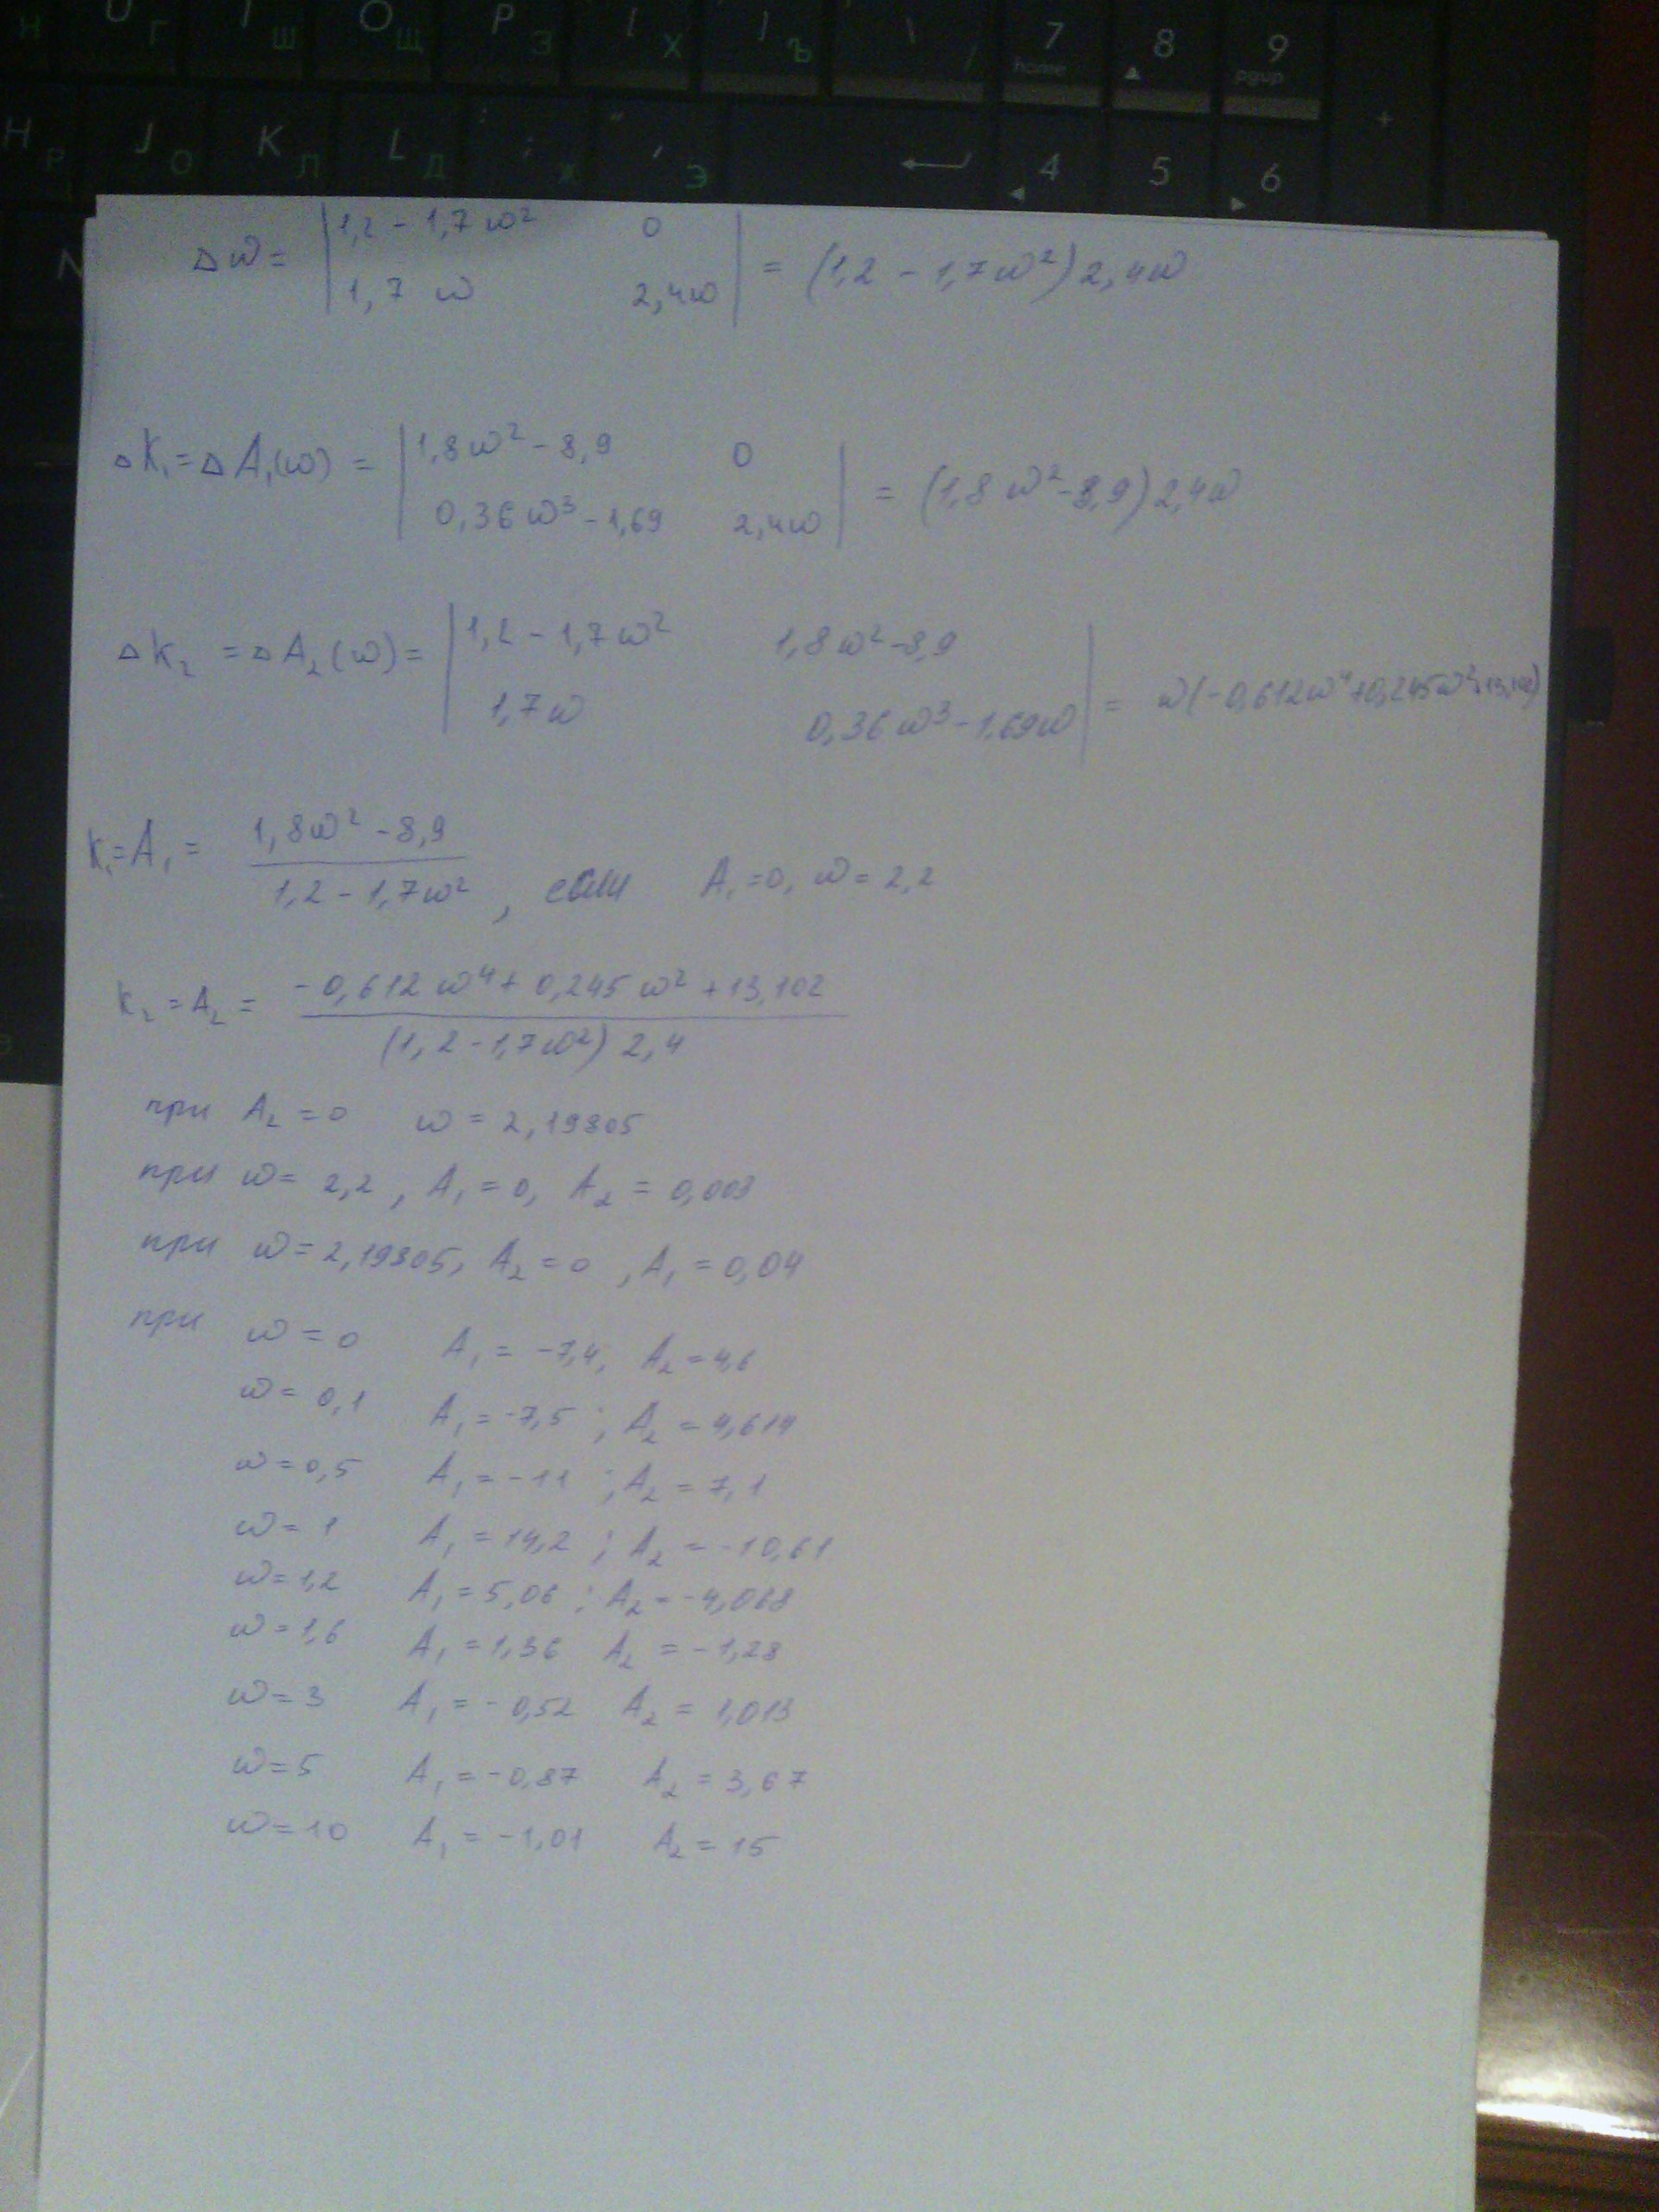 U Г I Ш O Щ P З [ Х ] Ъ \ / 7 home 8 9 pgup
H Р J О K Л L Д : ; Ж " ' Э 4 5 6 +
Δω = | 1,2 - 1,7ω² 0 |
| 1,7 ω 2,4ω | = (1,2 - 1,7ω²) 2,4ω
ΔK₁ = ΔA₁(ω) = | 1,8ω² - 8,9 0 |
| 0,36ω³ - 1,69 2,4ω | = (1,8ω² - 8,9) 2,4ω
ΔK₂ = ΔA₂(ω) = | 1,2 - 1,7ω² 1,8ω² - 8,9 |
| 1,7ω 0,36ω³ - 1,69ω | = ω(-0,612ω⁴ + 0,245ω² + 13,102)
K₁ = A₁ = (1,8ω² - 8,9) / (1,2 - 1,7ω²) , если A₁ = 0, ω = 2,2
K₂ = A₂ = (-0,612ω⁴ + 0,245ω² + 13,102) / ((1,2 - 1,7ω²) 2,4)
при A₂ = 0 ω = 2,19805
при ω = 2,2 , A₁ = 0, A₂ = 0,003
при ω = 2,19805, A₂ = 0 , A₁ = 0,04
при ω = 0 A₁ = -7,4; A₂ = 4,6
ω = 0,1 A₁ = -7,5 ; A₂ = 4,614
ω = 0,5 A₁ = -11 ; A₂ = 7,1
ω = 1 A₁ = 14,2 ; A₂ = -10,61
ω = 1,2 A₁ = 5,06 ; A₂ = -4,068
ω = 1,6 A₁ = 1,36 A₂ = -1,28
ω = 3 A₁ = -0,52 A₂ = 1,013
ω = 5 A₁ = -0,87 A₂ = 3,67
ω = 10 A₁ = -1,01 A₂ = 15